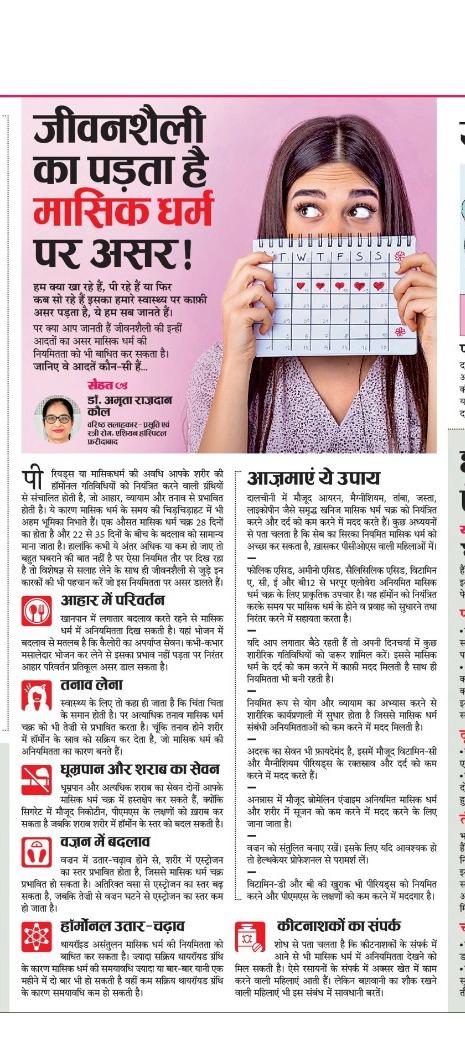 जीवनशैली
का पड़ता है
मासिक धर्म
पर असर!
हम क्या खा रहे हैं, पी रहे हैं या फिर
कब सो रहे हैं इसका हमारे स्वास्थ्य पर काफ़ी
असर पड़ता है, ये हम सब जानते हैं।
पर क्या आप जानती हैं जीवनशैली की इन्हीं
आदतों का असर मासिक धर्म की
नियमितता को भी बाधित कर सकता है।
जानिए वे आदतें कौन-सी हैं...
सेहत
डॉ. अमृता राज़दान
कौल
वरिष्ठ सलाहकार - प्रसूति एवं
स्त्री रोग, एशियन हॉस्पिटल
फ़रीदाबाद
T W T F S S
पीरियड्स या मासिकधर्म की अवधि आपके शरीर की
हॉर्मोनल गतिविधियों को नियंत्रित करने वाली ग्रंथियों
से संचालित होती है, जो आहार, व्यायाम और तनाव से प्रभावित
होती है। ये कारण मासिक धर्म के समय की चिड़चिड़ाहट में भी
अहम भूमिका निभाते हैं। एक औसत मासिक धर्म चक्र 28 दिनों
का होता है और 22 से 35 दिनों के बीच के बदलाव को सामान्य
माना जाता है। हालांकि कभी ये अंतर अधिक या कम हो जाए तो
बहुत घबराने की बात नहीं है पर ऐसा नियमित तौर पर दिख रहा
है तो विशेषज्ञ से सलाह लेने के साथ ही जीवनशैली से जुड़े इन
कारकों की भी पहचान करें जो इस नियमितता पर असर डालते हैं।
आहार में परिवर्तन
खानपान में लगातार बदलाव करते रहने से मासिक
धर्म में अनियमितता दिख सकती है। यहां भोजन में
बदलाव से मतलब है कि कैलोरी का अपर्याप्त सेवन। कभी-कभार
मसालेदार भोजन कर लेने से इसका प्रभाव नहीं पड़ता पर निरंतर
आहार परिवर्तन प्रतिकूल असर डाल सकता है।
तनाव लेना
स्वास्थ्य के लिए तो कहा ही जाता है कि चिंता चिता
के समान होती है। पर अत्यधिक तनाव मासिक धर्म
चक्र को भी तेज़ी से प्रभावित करता है। चूंकि तनाव होने शरीर
में हॉर्मोन के स्राव को सक्रिय कर देता है, जो मासिक धर्म की
अनियमितता का कारण बनते हैं।
धूम्रपान और शराब का सेवन
धूम्रपान और अत्यधिक शराब का सेवन दोनों आपके
मासिक धर्म चक्र में हस्तक्षेप कर सकते हैं, क्योंकि
सिगरेट में मौजूद निकोटीन, पीएमएस के लक्षणों को ख़राब कर
सकता है जबकि शराब शरीर में हॉर्मोन के स्तर को बदल सकती है।
वज़न में बदलाव
वज़न में उतार-चढ़ाव होने से, शरीर में एस्ट्रोजन
का स्तर प्रभावित होता है, जिससे मासिक धर्म चक्र
प्रभावित हो सकता है। अतिरिक्त वसा से एस्ट्रोजन का स्तर बढ़
सकता है, जबकि तेज़ी से वज़न घटने से एस्ट्रोजन का स्तर कम
हो जाता है।
हॉर्मोनल उतार-चढ़ाव
थायरॉइड असंतुलन मासिक धर्म की नियमितता को
बाधित कर सकता है। ज़्यादा सक्रिय थायरॉयड ग्रंथि
के कारण मासिक धर्म की समयावधि ज़्यादा या बार-बार यानी एक
महीने में दो बार भी हो सकती है वहीं कम सक्रिय थायरॉयड ग्रंथि
के कारण समयावधि कम हो सकती है।
आज़माएं ये उपाय
दालचीनी में मौजूद आयरन, मैग्नीशियम, तांबा, जस्ता,
लाइकोपीन जैसे समृद्ध खनिज मासिक धर्म चक्र को नियंत्रित
करने और दर्द को कम करने में मदद करते हैं। कुछ अध्ययनों
से पता चलता है कि सेब का सिरका नियमित मासिक धर्म को
अच्छा कर सकता है, ख़ासकर पीसीओएस वाली महिलाओं में।
फोलिक एसिड, अमीनो एसिड, सैलिसिलिक एसिड, विटामिन
ए, सी, ई और बी12 से भरपूर एलोवेरा अनियमित मासिक
धर्म चक्र के लिए प्राकृतिक उपचार है। यह हॉर्मोन को नियंत्रित
करके समय पर मासिक धर्म के होने व प्रवाह को सुधारने तथा
निरंतर करने में सहायता करता है।
यदि आप लगातार बैठे रहती हैं तो अपनी दिनचर्या में कुछ
शारीरिक गतिविधियों को ज़रूर शामिल करें। इससे मासिक
धर्म के दर्द को कम करने में काफ़ी मदद मिलती है साथ ही
नियमितता भी बनी रहती है।
नियमित रूप से योग और व्यायाम का अभ्यास करने से
शारीरिक कार्यप्रणाली में सुधार होता है जिससे मासिक धर्म
संबंधी अनियमितताओं को कम करने में मदद मिलती है।
अदरक का सेवन भी फ़ायदेमंद है, इसमें मौजूद विटामिन-सी
और मैग्नीशियम पीरियड्स के रक्तस्राव और दर्द को कम
करने में मदद करते हैं।
अनन्नास में मौजूद ब्रोमेलिन एंजाइम अनियमित मासिक धर्म
और शरीर में सूजन को कम करने में मदद करने के लिए
जाना जाता है।
वज़न को संतुलित बनाए रखें। इसके लिए यदि आवश्यक हो
तो हेल्थकेयर प्रोफेशनल से परामर्श लें।
विटामिन-डी और बी की खुराक भी पीरियड्स को नियमित
करने और पीएमएस के लक्षणों को कम करने में मददगार है।
कीटनाशकों का संपर्क
शोध से पता चलता है कि कीटनाशकों के संपर्क में
आने से भी मासिक धर्म में अनियमितता देखने को
मिल सकती है। ऐसे रसायनों के संपर्क में अक्सर खेत में काम
करने वाली महिलाएं आती हैं। लेकिन बाग़वानी का शौक रखने
वाली महिलाएं भी इस संबंध में सावधानी बरतें।